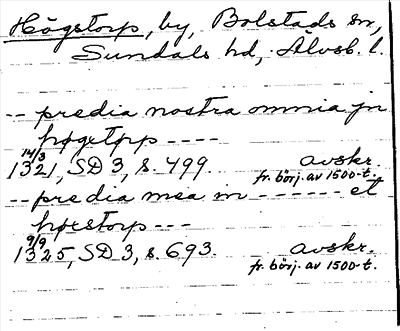 Högstorp, by, Bolstads sn,
Sundals hd, Älvsb. l.
-- predia nostra omnia jn
høgetøpp ----
14/3
1321, SD 3, s. 499. avskr.
fr. börj. av 1500-t.
-- predia mea in ------ et
hørstorp ---
9/9
1325, SD 3, s. 693. avskr.
fr. börj. av 1500-t.